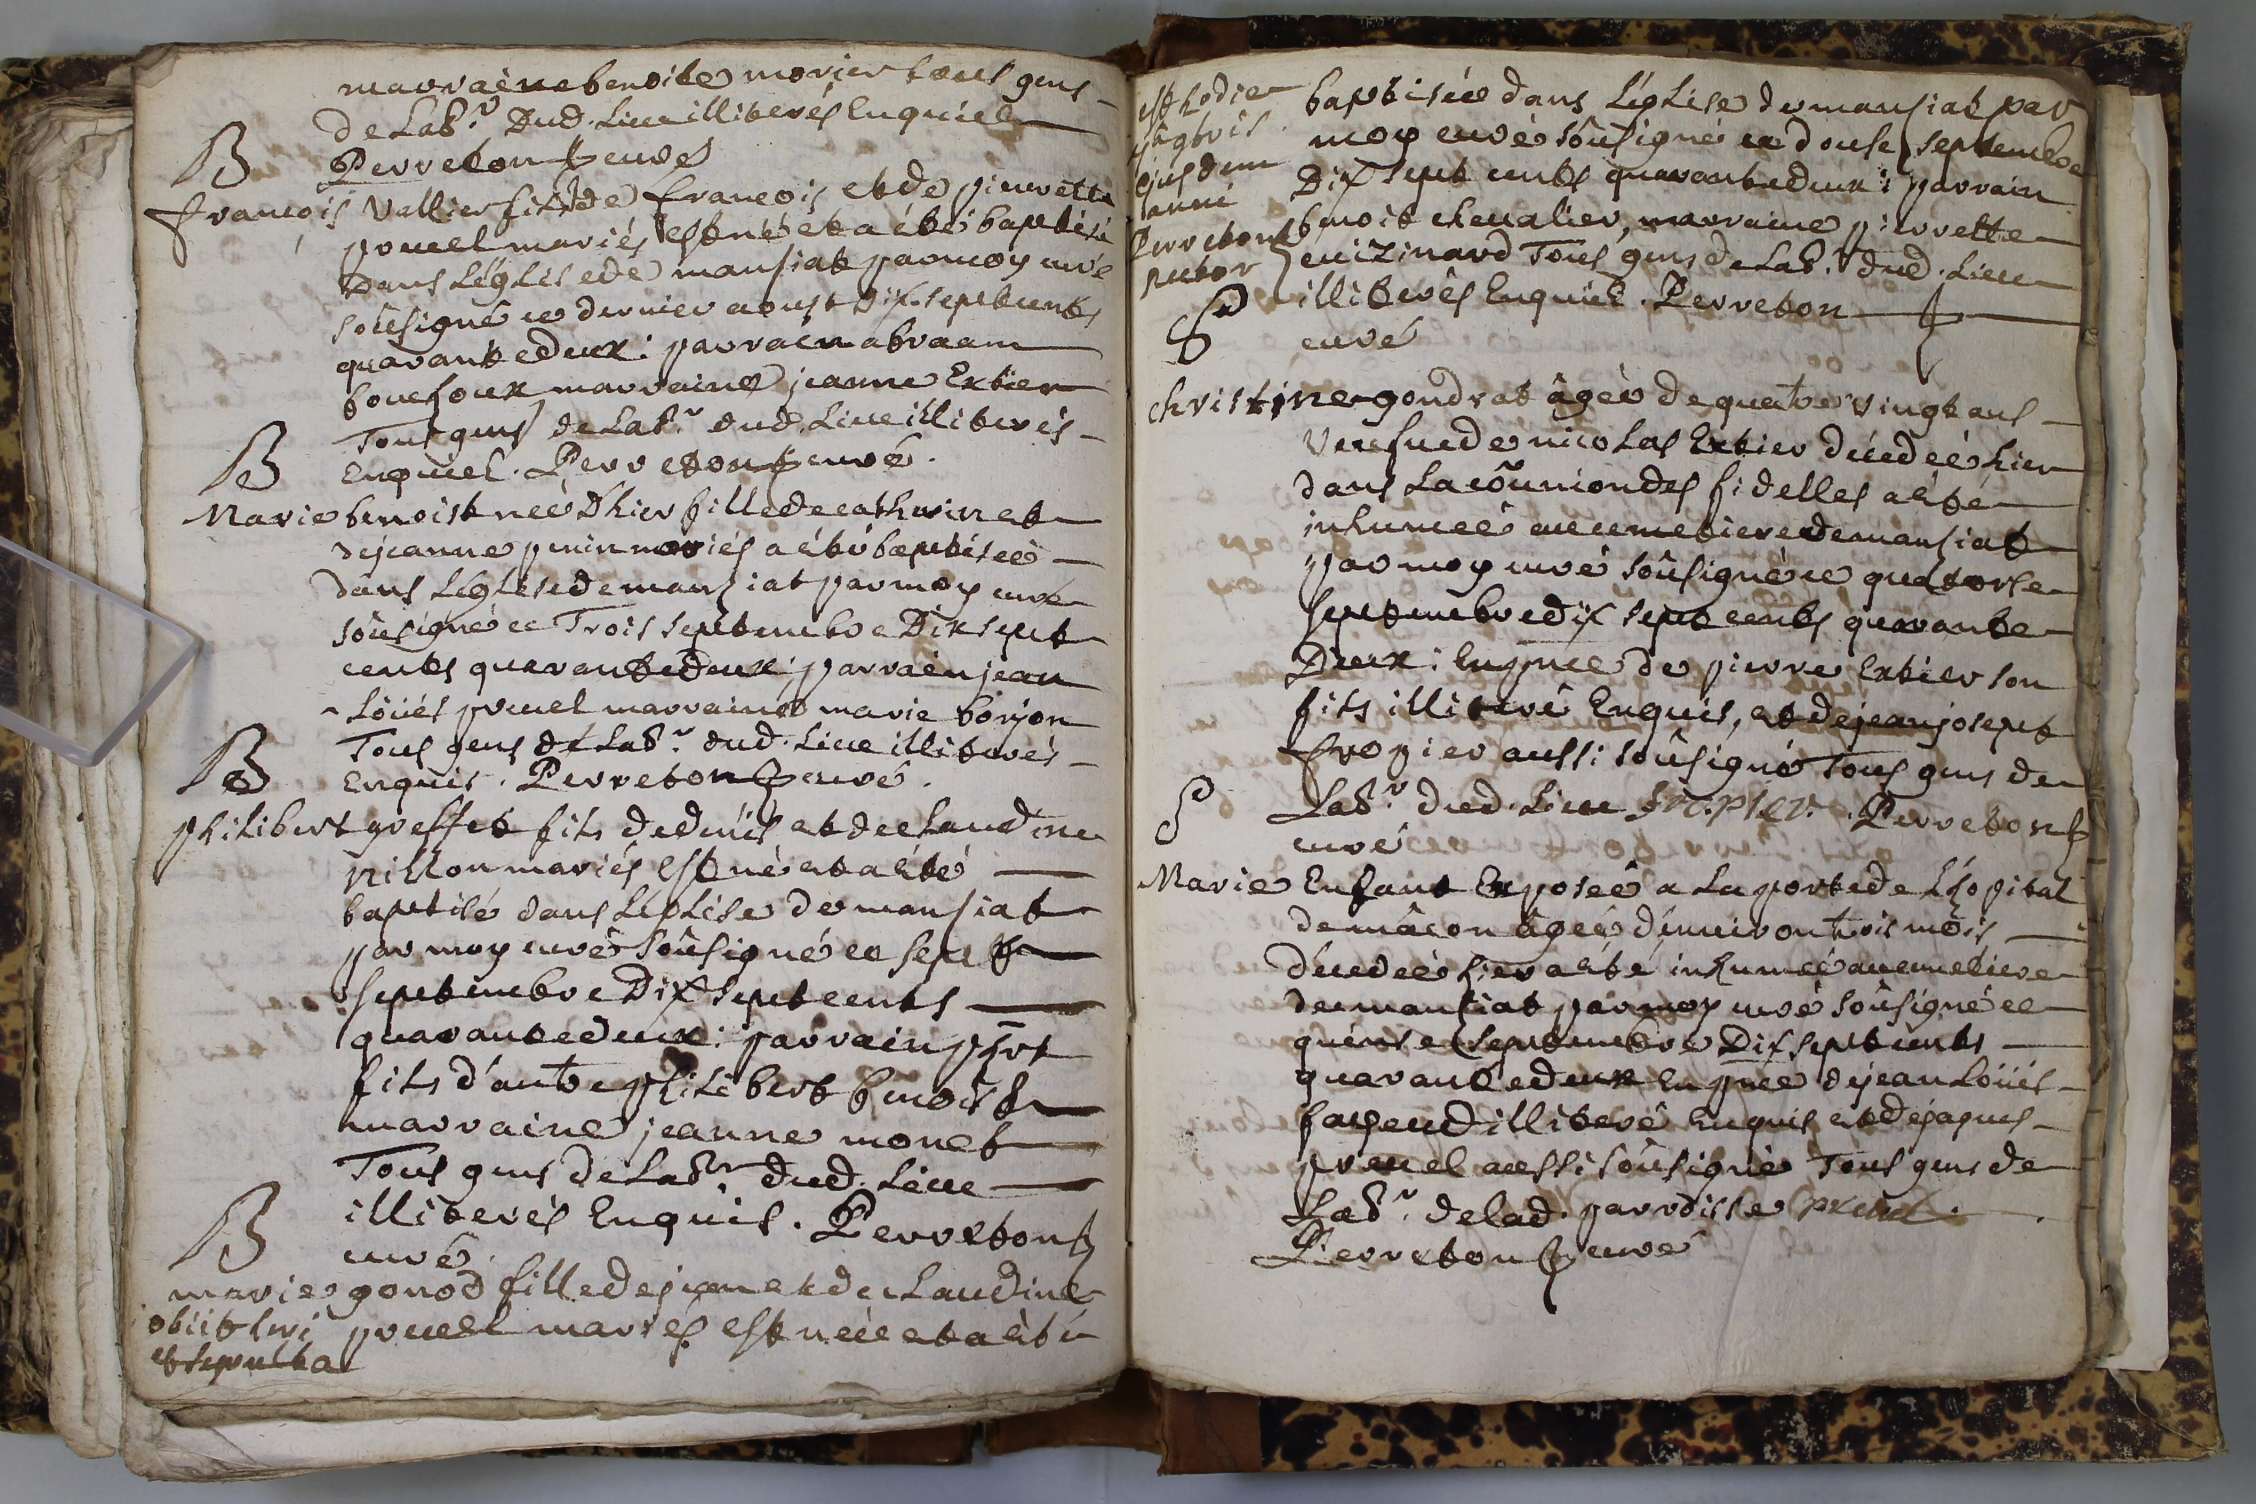 marraine benoite morier tous gens
de Lab.r Dud. Lieu illiterés Enquiel
B
Perreton curé
françois Vallier fils de françois et de pierrette
pruel mariés est né et a été baptisé
Dans L'église de mansiat par moy curé
soûsigné ce dernier aoust Dix sept cents
quarante deux: parrain abraam
marraine jeanne Extier
Tous gens de Lab.r dud. Lieu illiterés
B
Enquiel. Perreton curé.
Marie benoist neé D'hier fille de catherin et
de jeanne perin mariés a été baptiseé
dans L'église de mansiat par moy curé
soûsigné ce Trois septembre Dix sept
cents quarante deux: parrain jean
Loüés pruel marraine marie borjon
Tous gens de Lab.r dud. Lieu illiterés
B
Enquis. Perreton curé.
philibert greffet fils de denis et de claudine
nillon mariés est né et a été
baptisé dans L'église de mansiat
par moy curé soûsigné ce sept
septembre Dix sept cents
quarante deux: parrain phrt
fils d'autre philibert benoist
marraine jeanne monet
Tous gens de Lab.r dud. Lieu
illiterés Enquis. Perreton
B
curé
marie gonod fille de jean et de claudine
obiit
pruel mariés est neéé et a été
et sepulta
est hodie
baptisée dans L'église de mansiat par
moy curé soûsigné ce douse septembre
ejusdem
Dix sept cents quarante deux: parrain
anni
benoit chevalier, marraine pierrette
Perreton
cuizinard Tous gens de Lab.r dud. Lieu
illiterés Enquiel. Perreton
S
curé
christine gondrat âgeé de quatre vingt ans
Veufue de nicolas Extier décedeé hier
dans La coûnion des fidelles a été
inhumeé au cemetiere de mansiat
par moy curé soûsigné ce quatorse
septembre dix sept cents quarante
Deux: En pnce de pierre Extier son
fils illiteré Enquis, et de jean josept
fropier aussi soûsigné Tous gens de
Lab.r dud. Lieu fropier. Perreton
S
curé
Marie Enfant Exposeé a La porte de L'hopital
de mâcon âgeé d'environ trois mois
décedeé hier a été inhumeé au cemetiere
de mansiat par moy curé soûsigné ce
quinse septembre Dix sept cents
quarante deux En pnce de jean Loüés
illiteré Enquis et de jaques
pruel aussi soûsigné Tous gens de
Lab.r de lad. parroisse pruel.
Perreton curé